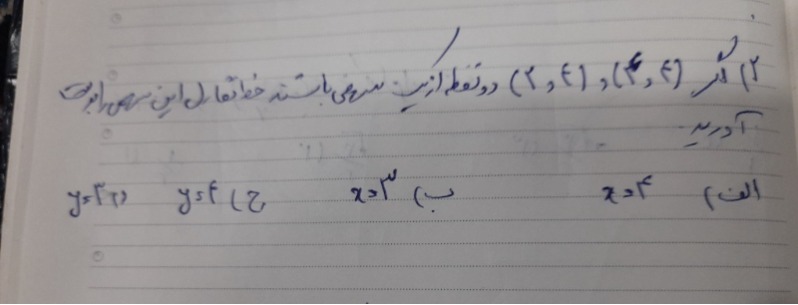 ۲) اگر (۴,۴) و (۲,۴) دو نقطه از یک سهمی باشند خط تقارن این سهمی را بدست
آورید.
الف) x=۴ ب) x=۳ ج) y=۴ د) y=۳